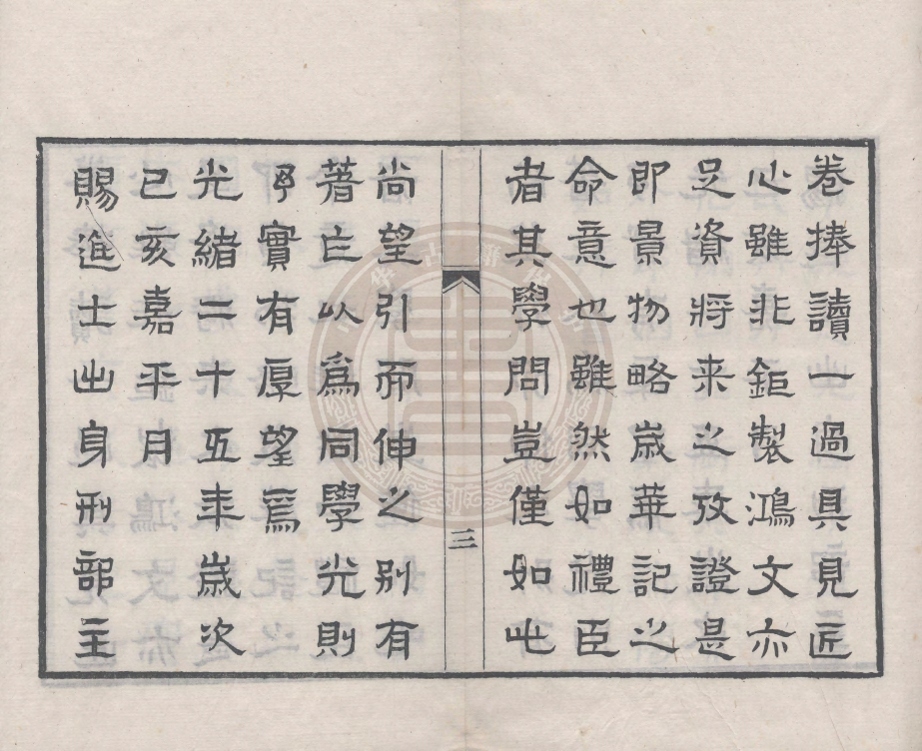 卷捧讀一過具見匠
心雖非鉅製鴻文亦
足資將来之攷證是
即景物略歲華記之
命意也雖然如禮臣
者其學問豈僅如此
三
尚望引而伸之別有
著亡以為同學光則
予實有厚望焉
光緒二十五年歲次
己亥嘉平月
賜進士出身刑部主